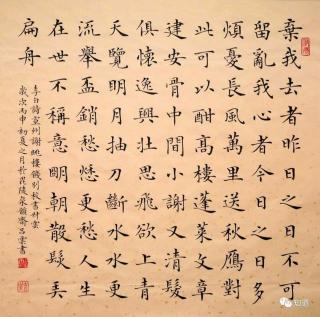 棄我去者昨日之日不可
留亂我心者今日之日多
煩憂長風萬里送秋鴈對
此可以酣高樓蓬萊文章
建安骨中間小謝又清髮
俱懷逸興壯思飛欲上青
天覽明月抽刀斷水水更
流舉盃銷愁愁更愁人生
在世不稱意明朝散髮弄
扁舟
李白詩宣州謝朓樓餞別校書叔雲
歲次丙申初夏之月於毘陵泉韻齋呂雲書